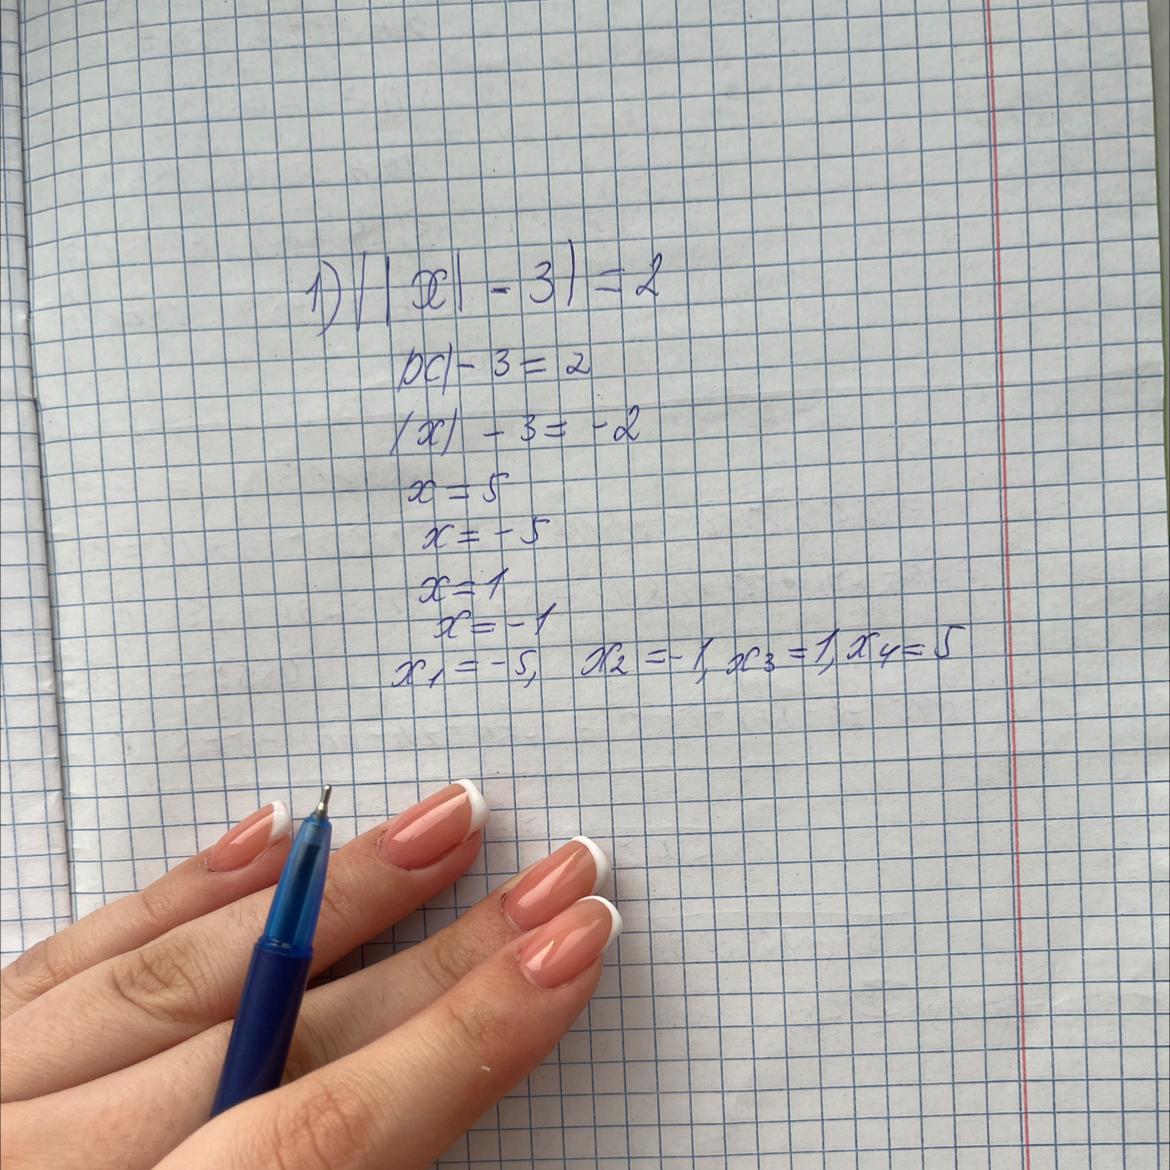 1) ||x| - 3| = 2
|x| - 3 = 2
|x| - 3 = -2
x = 5
x = -5
x = 1
x = -1
x₁ = -5, x₂ = -1, x₃ = 1, x₄ = 5